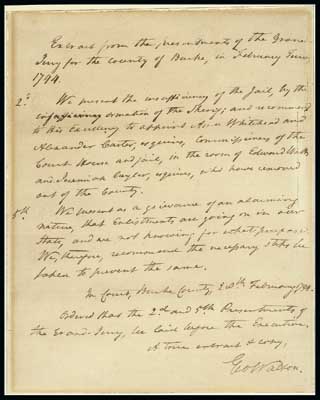 Extract from the presentments of the Grand
Jury for the County of Burke, in February Term,
1794.
2d. We present the insufficiency of the jail, by the
information of the Sheriff, and recommend
to his Excellency to appoint Asa Whitehead and
Alexander Carter, esquires, Commissioners of the
Court House and jail, in the room of Edward
and Jeremiah esquires, who have removed
out of the County.
5th. We present as a grievance of an alarming
nature, that Enlistments are going on in our
State, and are not knowing for what purpose.
We, therefore, recommend the necessary steps be
taken to prevent the same.
In Court, Burke County, February
Ordered that the 2d. and 5th. Presentments of
the Grand-Jury, be laid before the Executive.
A true extract & copy,
Geo Watson.